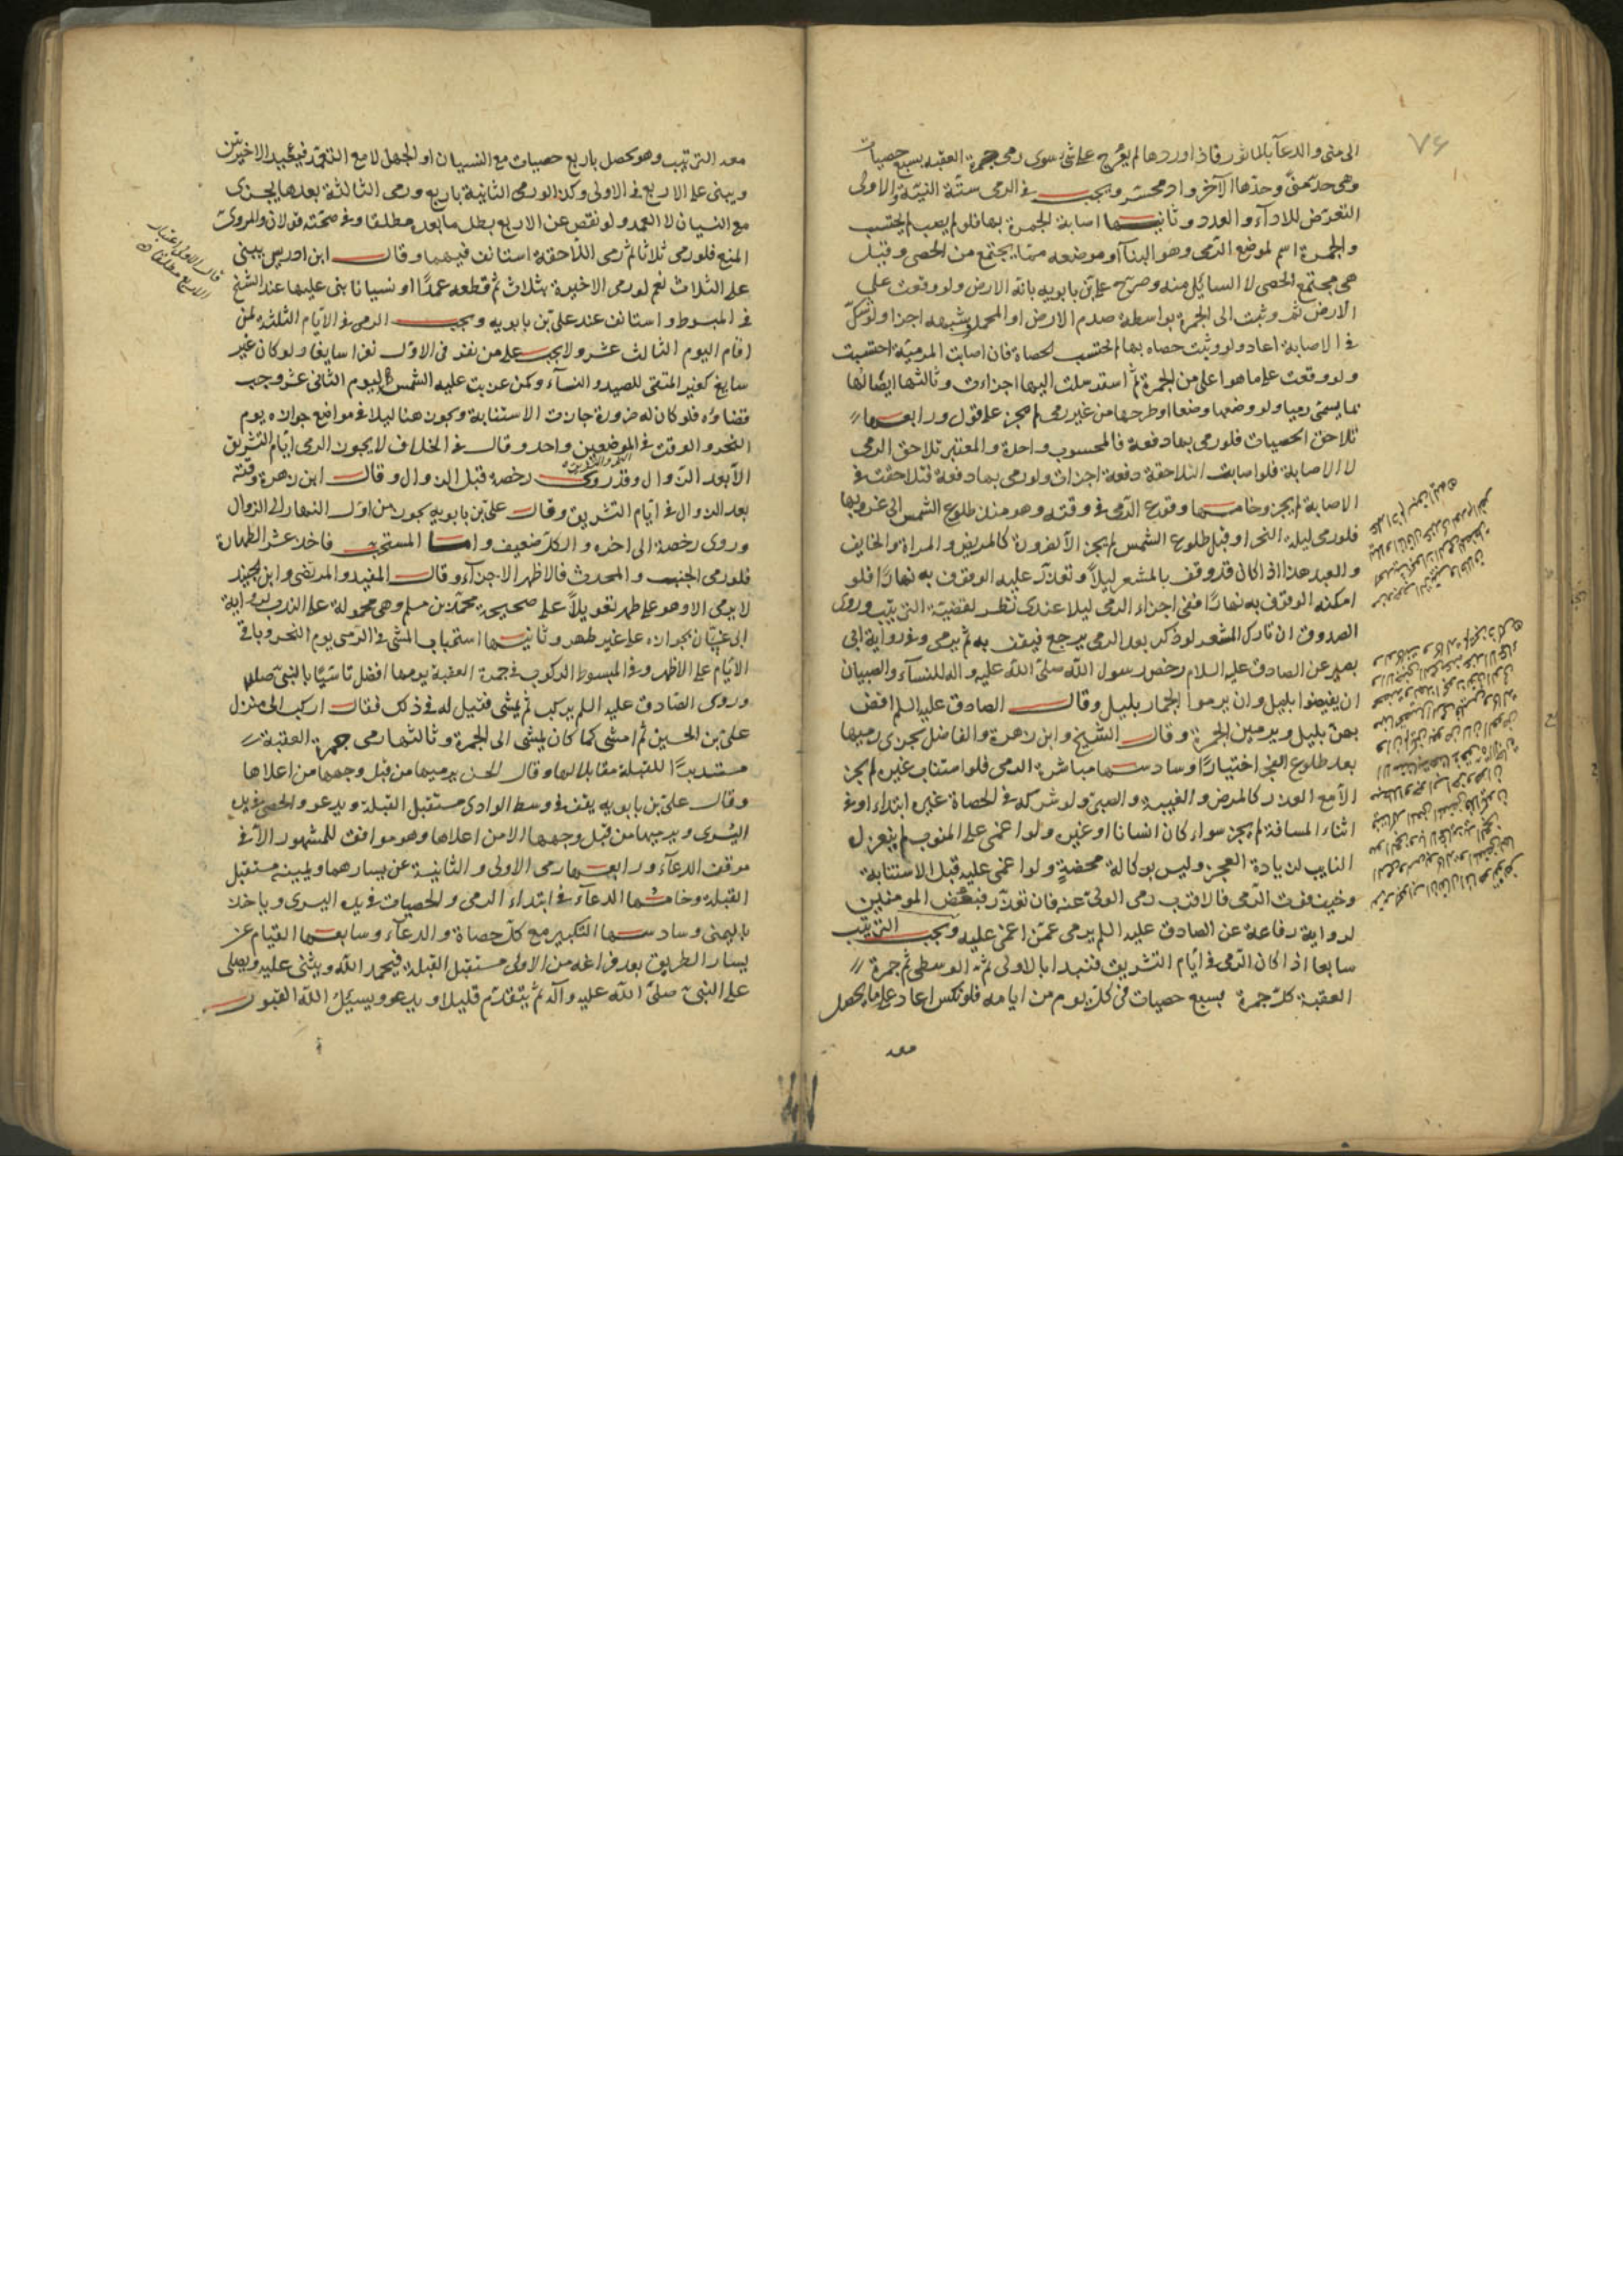 ٧٤
الى منى والدعآ بالماثور فاذا وردها لم يعرج على شئ سوى رمى جمرة العقبة بسبع حصيات
وهى حد منى وحدها الآخر وادى محسر ويجب فى الرمى ستة النية والاولى
التعرض للاداء والعدد وثانيها اصابة الجمرة بها فلو لم يصب لم يحتسب
والجمرة اسم لموضع الرمى وهو البنآ او موضعه مما يجتمع من الحصى وقيل
هى مجتمع الحصى لا السائل منه وصرح على بن بابويه بانه الارض ولو وقعت على
الارض ثم وثبت الى الجمرة بواسطة صدم الارض او المحمل وشبهه اجزا ولو شك
فى الاصابة اعاد ولو وثبت حصاه بها لم تحتسب الحصاة فان اصابت المرمية احتسبت
ولو وقعت على ما هو اعلى من الجمرة ثم استرسلت اليها اجزات وثالثها ايصالها
بما يسمى رميا ولو وضعها وضعا او طرحها من غير رمى لم يجز على قول ورابعها
تلاحق الحصيات فلو رمى بها دفعة فالمحسوب واحدة والمعتبر تلاحق الرمى
لا الاصابة فلو اصابت المتلاحقة دفعة اجزات ولو رمى بها دفعة فتلاحقت فى
الاصابة لم يجز وخامسها وقوع الرمى فى وقته وهو من طلوع الشمس الى غروبها
فلو رمى ليلة النحر او قبل طلوع الشمس لم يجز الا لضرورة كالمريض والمراة والخايف
والعبد هذا اذا كان قد وقف بالمشعر ليلاً وتعذر عليه الوقوف به نهارًا فلو
امكنه الوقوف به نهارًا ففى اجزاء الرمى ليلا عندى نظر لقضية الترتيب وروى
الصدوق ان تارك المشعر لو ذكر بعد الرمى يرجع فيقف به ثم يرمى وفى رواية ابى
بصير عن الصادق عليه السلام رخص رسول الله صلى الله عليه واله للنسآء والصبيان
ان يفيضوا بليل وان يرموا الجمار بليل وقال الصادق عليه السلم افض
بهن بليل ويرمين الجمرة وقال الشيخ وابن زهرة والفاضل يجزى رميها
بعد طلوع الفجر اختيارًا وسادسها مباشرة الرمى فلو استناب غيره لم يجز
الا مع العذر كالمرض والغيبة والصبى ولو شركه فى الحصاة غيره ابتداء او فى
اثناء المسافة لم يجز سواء كان انسانا او غيره ولو اغمى على المنوب لم ينعزل
النايب لزيادة العجز وليس بوكالة محضة ولو اغمى عليه قبل الاستنابة
وخيف فوت الرمى فالاقرب رمى الولى عنه فان تعذر فبعض المومنين
لرواية رفاعة عن الصادق عليه السلم يرمى عمن اغمى عليه ويجب الترتيب
سابعا اذا كان الرمى فى ايام التشريق فتبدا بالاولى ثم الوسطى ثم جمرة
العقبة كل جمرة بسبع حصيات فى كل يوم من ايامه فلو نكس اعاد على ما يحصل
معه
معه الترتيب وهو يحصل باربع حصيات مع النسيان او الجهل لا مع التعمد فيعيد الاخيرتين
ويبنى على الاربع فى الاولى وكذا لو رمى الثانية باربع ورمى الثالثة بعدها يجزى
مع النسيان لا العمد ولو نقص عن الاربع بطل ما بعد مطلقا وفى صحته قولان والمروى
المنع فلو رمى ثلاثا ثم رمى اللاحقة استانف فيهما وقال ابن ادريس يبنى
على الثلاث نعم لو رمى الاخيرة بثلاث ثم قطعه عمدًا او نسيانا بنى عليها عند الشيخ
فى المبسوط واستانف عند على بن بابويه ويجب الرمى فى الايام الثلثة لمن
اقام اليوم الثالث عشر ولا يجب على من نفر فى الاول نفرا سايغا ولو كان غير
سايغ كغير المتقى للصيد والنسآء وكمن غربت عليه الشمس اليوم الثانى عشر وجب
قضاؤه فلو كان له ضرورة جازت الاستنابة ويجوز هنا ليلا فى مواضع جوازه يوم
النحر والوقت فى الموضعين واحد وقال فى الخلاف لا يجوز الرمى ايام التشريق
الا بعد الزوال وقد روى رخصة قبل الزوال وقال ابن زهرة وقته
بعد الزوال فى ايام التشريق وقال على بن بابويه يجوز من اول النهار الى الزوال
وروى رخصة الى اخره والكل ضعيف واما المستحب فاحد عشر الطهارة
فلو رمى الجنب والمحدث فالاظهر الاجزآء وقال المفيد والمرتضى وابن الجنيد
لا يرمى الا وهو على طهر تعويلاً على صحيحة محمد بن مسلم وهى محمولة على الندب لرواية
ابى غسان بجوازه على غير طهر وثانيها استحباب المشى فى الرمى يوم النحر وباقى
الايام على الاظهر وفى المبسوط الركوب فى جمرة العقبة يومها افضل تاسيًا بالنبى صلى الله
وروى الصادق عليه السلم يركب ثم يمشى فقيل له فى ذلك فقال اركب الى منزل
على بن الحسين ثم امشى كما كان يمشى الى الجمرة وثالثها رمى جمرة العقبة
مستدبرًا للقبلة مقابلا لها وقال الحسن يرميها من قبل وجهها من اعلاها
وقال على بن بابويه يقف فى وسط الوادى مستقبل القبلة ويدعو والحصى فى يده
اليسرى ويرميها من قبل وجهها لا من اعلاها وهو موافق للمشهور الا فى
موقف الدعآء ورابعها رمى الاولى والثانية عن يسارهما ويمينه مستقبل
القبلة وخامسها الدعآء فى ابتداء الرمى والحصيات فى يده اليسرى وياخذ
باليمنى وسادسها التكبير مع كل حصاة والدعآء وسابعها القيام عن
يسار الطريق بعد فراغه من الاولى مستقبل القبلة فيحمد الله ويثنى عليه ويصلى
على النبى صلى الله عليه وآله ثم يتقدم قليلا ويدعو ويسئل الله القبول